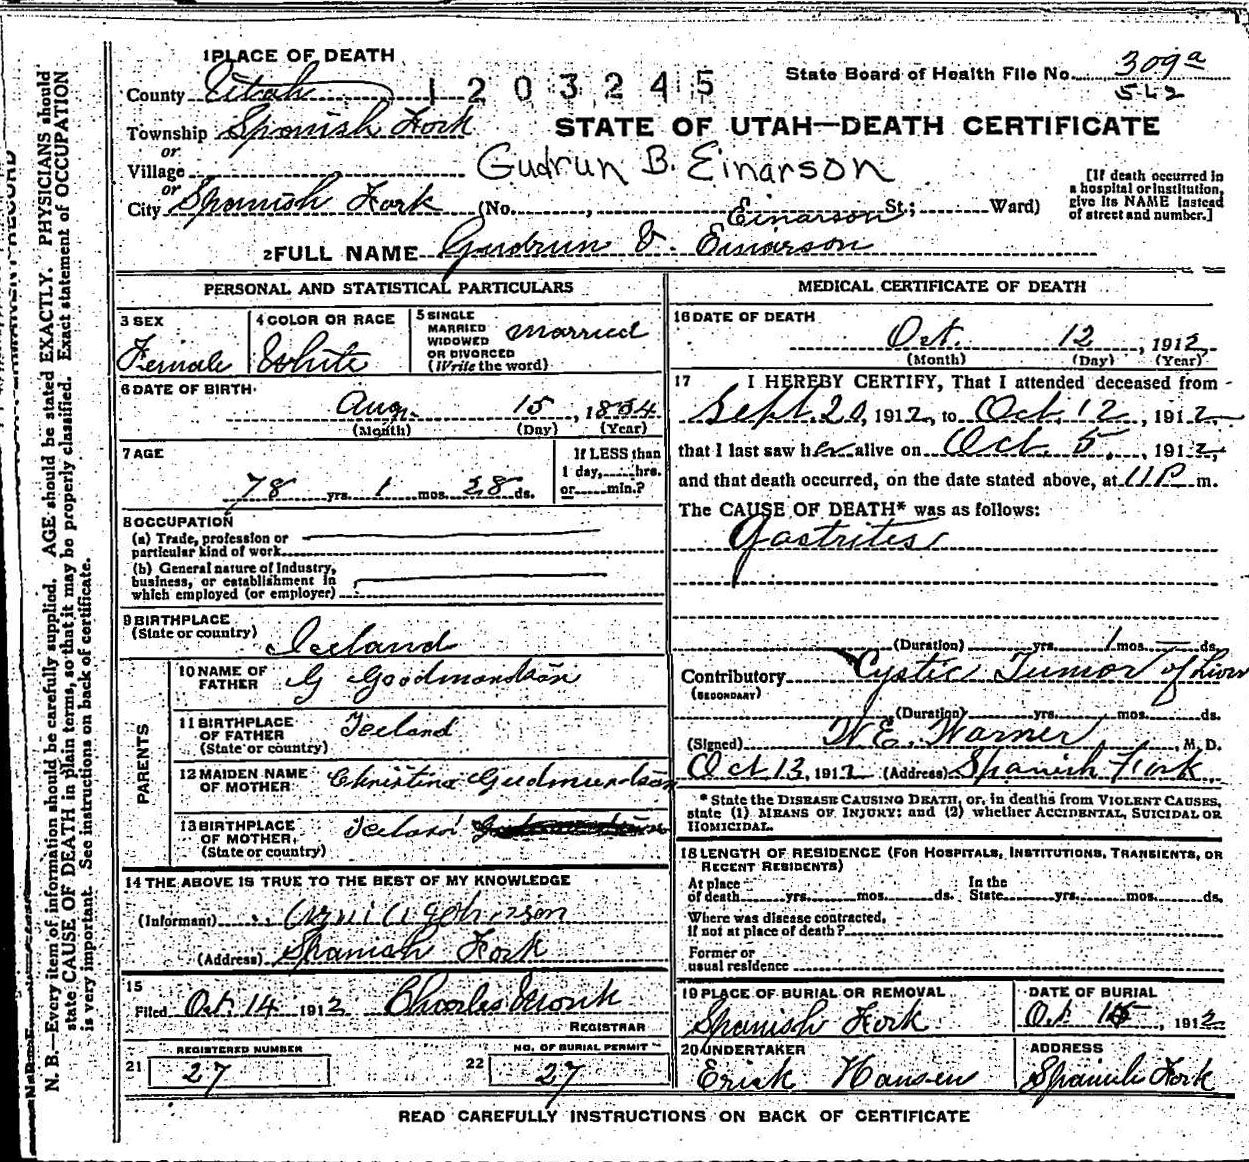 1 PLACE OF DEATH
County Utah
1203245
State Board of Health File No. 309a
542
Township Spanish Fork
STATE OF UTAH—DEATH CERTIFICATE
or
Village
Gudrun B. Einarson
[If death occurred in a hospital or institution, give its NAME instead of street and number.]
or
City Spanish Fork (No. , St.; Ward)
Einarson
2 FULL NAME Gudrun Einarson
PERSONAL AND STATISTICAL PARTICULARS
3 SEX
Female
4 COLOR OR RACE
White
5 SINGLE
MARRIED
WIDOWED
OR DIVORCED
(Write the word)
married
6 DATE OF BIRTH
Aug. 15, 1834
(Month) (Day) (Year)
7 AGE
78 yrs. 1 mos. 28 ds.
If LESS than
1 day, hrs.
or min.?
8 OCCUPATION
(a) Trade, profession or
particular kind of work
(b) General nature of industry,
business, or establishment in
which employed (or employer)
9 BIRTHPLACE
(State or country) Iceland
PARENTS
10 NAME OF
FATHER G Goodmandson
11 BIRTHPLACE
OF FATHER
(State or country) Iceland
12 MAIDEN NAME
OF MOTHER Christina Gudmundson
13 BIRTHPLACE
OF MOTHER,
(State or country) Iceland
14 THE ABOVE IS TRUE TO THE BEST OF MY KNOWLEDGE
(Informant) Johnson
(Address) Spanish Fork
15
Filed Oct. 14 1912 Charles Monk
REGISTRAR
REGISTERED NUMBER
21 27
NO. OF BURIAL PERMIT
22 27
MEDICAL CERTIFICATE OF DEATH
16 DATE OF DEATH
Oct. 12, 1912
(Month) (Day) (Year)
17 I HEREBY CERTIFY, That I attended deceased from
Sept. 20, 1912, to Oct. 12, 1912,
that I last saw her alive on Oct. 5, 1912,
and that death occurred, on the date stated above, at 11 P m.
The CAUSE OF DEATH* was as follows:
Gastrites
(Duration) yrs. 1 mos. — ds.
Contributory Cystic Tumor of Liver
(SECONDARY)
(Duration) yrs. mos. ds.
(Signed) W.E. Warner, M. D.
Oct 13, 1912 (Address) Spanish Fork
* State the DISEASE CAUSING DEATH, or, in deaths from VIOLENT CAUSES,
state (1) MEANS OF INJURY; and (2) whether ACCIDENTAL, SUICIDAL OR
HOMICIDAL.
18 LENGTH OF RESIDENCE (FOR HOSPITALS, INSTITUTIONS, TRANSIENTS, OR
RECENT RESIDENTS)
At place
of death yrs. mos. ds. In the
State yrs. mos. ds.
Where was disease contracted,
if not at place of death?
Former or
usual residence
19 PLACE OF BURIAL OR REMOVAL
Spanish Fork
DATE OF BURIAL
Oct 15, 1912
20 UNDERTAKER
Erick Hansen
ADDRESS
Spanish Fork
READ CAREFULLY INSTRUCTIONS ON BACK OF CERTIFICATE
N. B.—Every item of information should be carefully supplied. AGE should be stated EXACTLY. PHYSICIANS should
state CAUSE OF DEATH in plain terms, so that it may be properly classified. Exact statement of OCCUPATION
is very important. See instructions on back of certificate.